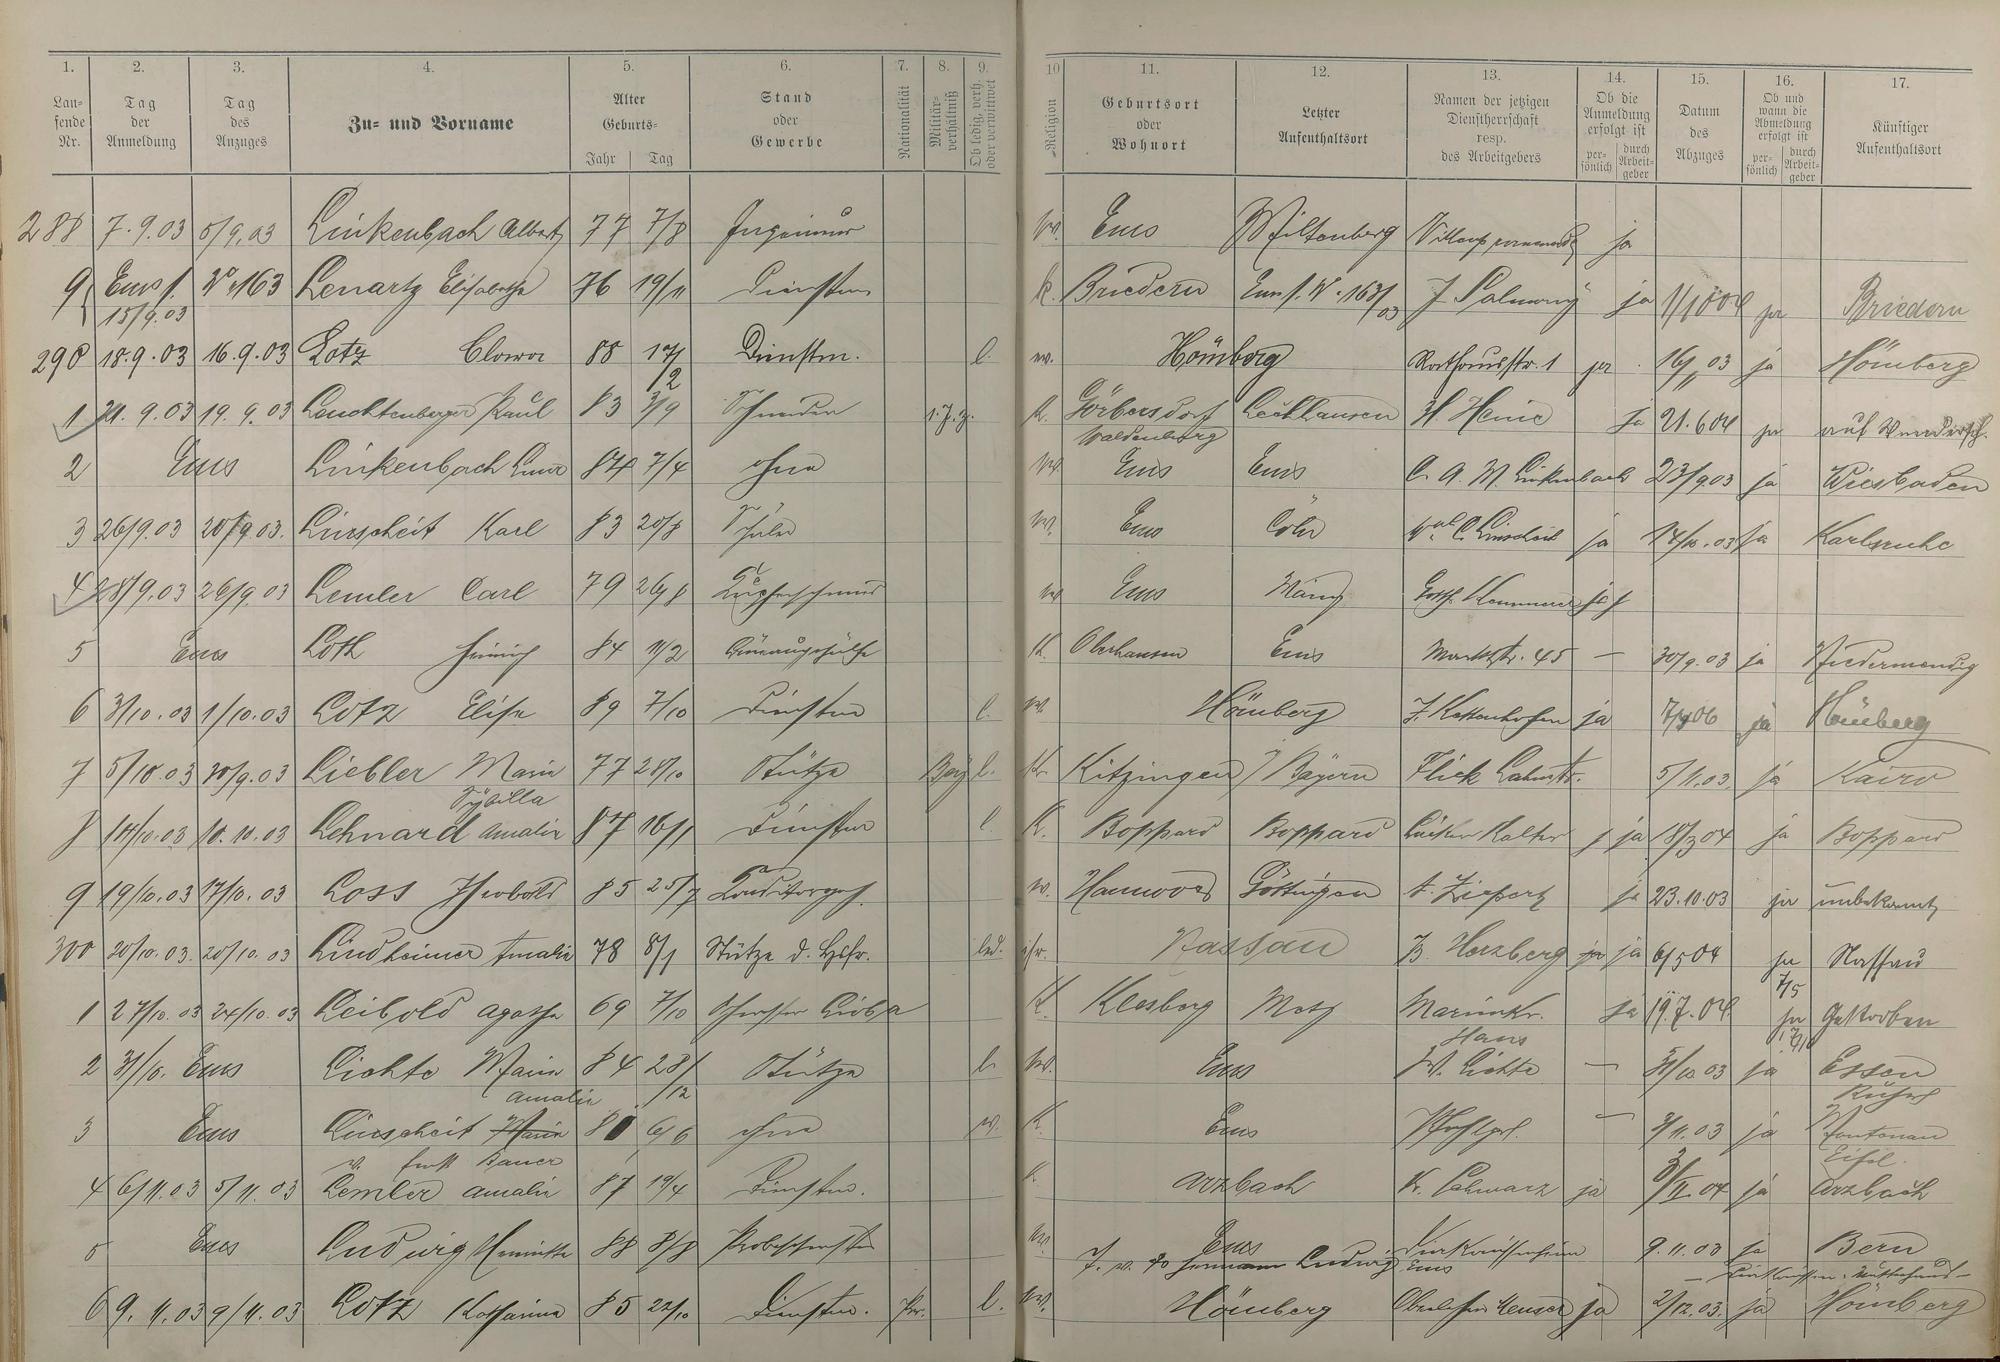 1. 2. 3. 4. 5. 6. 7. 8. 9. 10 11. 12. 13. 14. 15. 16. 17.
Lau-
fende
Nr.
Tag
der
Anmeldung
Tag
des
Anzuges
Zu- und Vorname
Alter
Geburts-
Jahr Tag
Stand
oder
Gewerbe
Nationalität
Militär-
verhältniß
Ob ledig, verh.
oder verwittwet
Religion
Geburtsort
oder
Wohnort
Letzter
Aufenthaltsort
Namen der jetzigen
Dienstherrschaft
resp.
des Arbeitgebers
Ob die
Anmeldung
erfolgt ist
per-
sönlich
durch
Arbeit-
geber
Datum
des
Abzuges
Ob und
wann die
Abmeldung
erfolgt ist
per-
sönlich
durch
Arbeit-
geber
Künftiger
Aufenthaltsort
288 7.9.03 5/9.03 Linkenbach Albert 77 7/8 Ingenieur w. Ems Miltenberg ja
9 Ems f. No 163 Lenartz Elisabetha 76 19/11 Dienstm. k. Briedern Ems f. No 163/03 J. Salmony ja 1/1 04 ja Briedern
15/9.03
290 18.9.03 16.9.03 Lotz Clara 88 17/12 Dienstm. l. w. Hömberg Rathausstr. 1 ja 16/11 03 ja Hömberg
1 21.9.03 19.9.03 Leuchtenberger Paul 83 3/9 Schneider k. Görbersdorf H. Heine ja 21.6 04 ja auf Wandersch.
Waldenburg
2 Ems Linkenbach 84 7/4 ohne w. Ems Ems C. A. W. Linkenbach 23/9 03 ja Wiesbaden
3 26/9.03 20/9 03. Linscheit Karl 83 20/8 Schüler w. Ems Cöln C. Linscheit ja 14/10.03 ja Karlsruhe
4 28/9.03 26/9.03 Lemler Carl 79 26/8 Kupferschmied w Ems Mainz ja
5 Ems Loth Heinrich 84 11/2 K. Oberhausen Ems Marktstr. 45 — 30/9.03 ja Niedermendig
6 3/10.03 1/10.03 Lotz Elise 89 7/10 Dienstm l. w. Hömberg J. Kattenhofen ja ja Hömberg
7 5/10.03 30/9.03 Liebler Maria 77 28/10 Stütze Bay l. K. Kitzingen / Bayern Flick Lahnstr. 5/11.03. ja Kairo
Sybilla
8 14/10.03 10.10.03 Lehnard Amalie 87 16/1 Dienstm l. K. Boppard Boppard ja 18/3 04 ja Boppard
9 19/10.03 17/10.03 Loss 85 25/7 Conditorgeh. w. Hannover Göttingen A. Ziepert ja 23.10.03 ja unbekannt
300 20/10.03. 20/10.03 Lindheimer Amalie 78 8/1 Stütze d. Hsfr. led. isr. Nassau B. Herzberg ja 6/5 04 ja Nassau
7/5
1 27/10.03 24/10.03 Leibold Agatha 69 7/10 Schwester Lioba K. Klesberg Metz Marienkr. ja 19.7.04 ja Gestorben
Haus
2 31/10. Ems Lichte Maria 84 28/12 Stütze l. w. Ems W. Lichte — 31/10 03 ja Essen
Amalie Ruhr
3 Ems Linscheit 80 6/6 ohne w. K. Ems — 3/11.03 ja
Bauer Eifel.
4 6/11.03 5/11.03 Lemler Amalie 87 19/4 Dienstm. k Arzbach K. Schwarz ja 3/II.04 ja Arzbach
5 Ems Ludwig Henriette 88 8/8 Probeschwester w. Ems Diakonissenheim 9.11.03 ja Bern
Hermann Ludwig Ems
6 9.11.03 9/11.03 Lotz Katharina 85 22/10 Dienstm. Pr. l. w. Hömberg ja 2/12.03. ja Hömberg